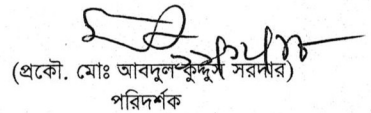 (প্রকৌ. মোঃ আবদুল কুদ্দুস সরদার)
পরিদর্শক